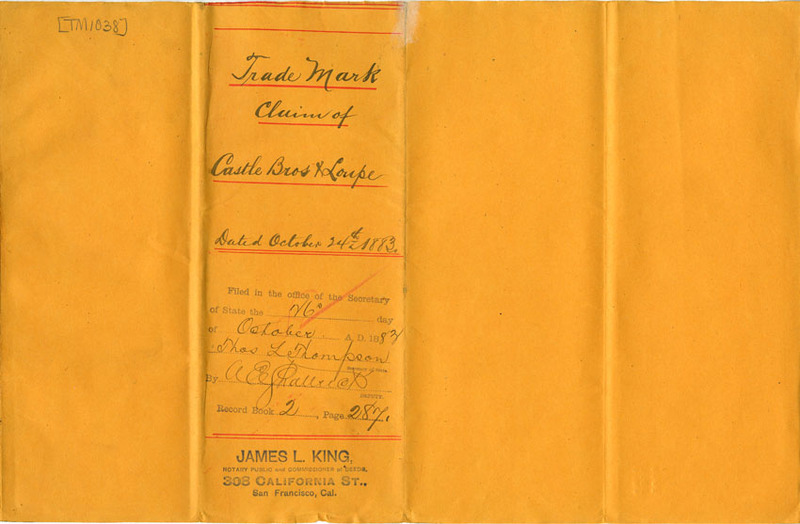 [TM1038]
Trade Mark
Claim of
Castle Bros & Loupe
Dated October 24th 1883.
Filed in the office of the Secretary
of State the 26th day
of October A. D. 1883
Thos L Thompson
Secretary of State.
By A E
DEPUTY.
Record Book 2, Page 287.
JAMES L. KING,
NOTARY PUBLIC and COMMISSIONER of DEEDS,
308 CALIFORNIA ST.,
San Francisco, Cal.